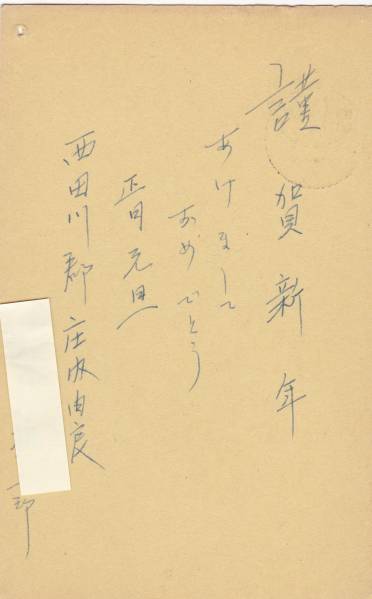 謹賀新年
あけまして
おめでとう
正月元旦
西田川郡庄内由良
一郎